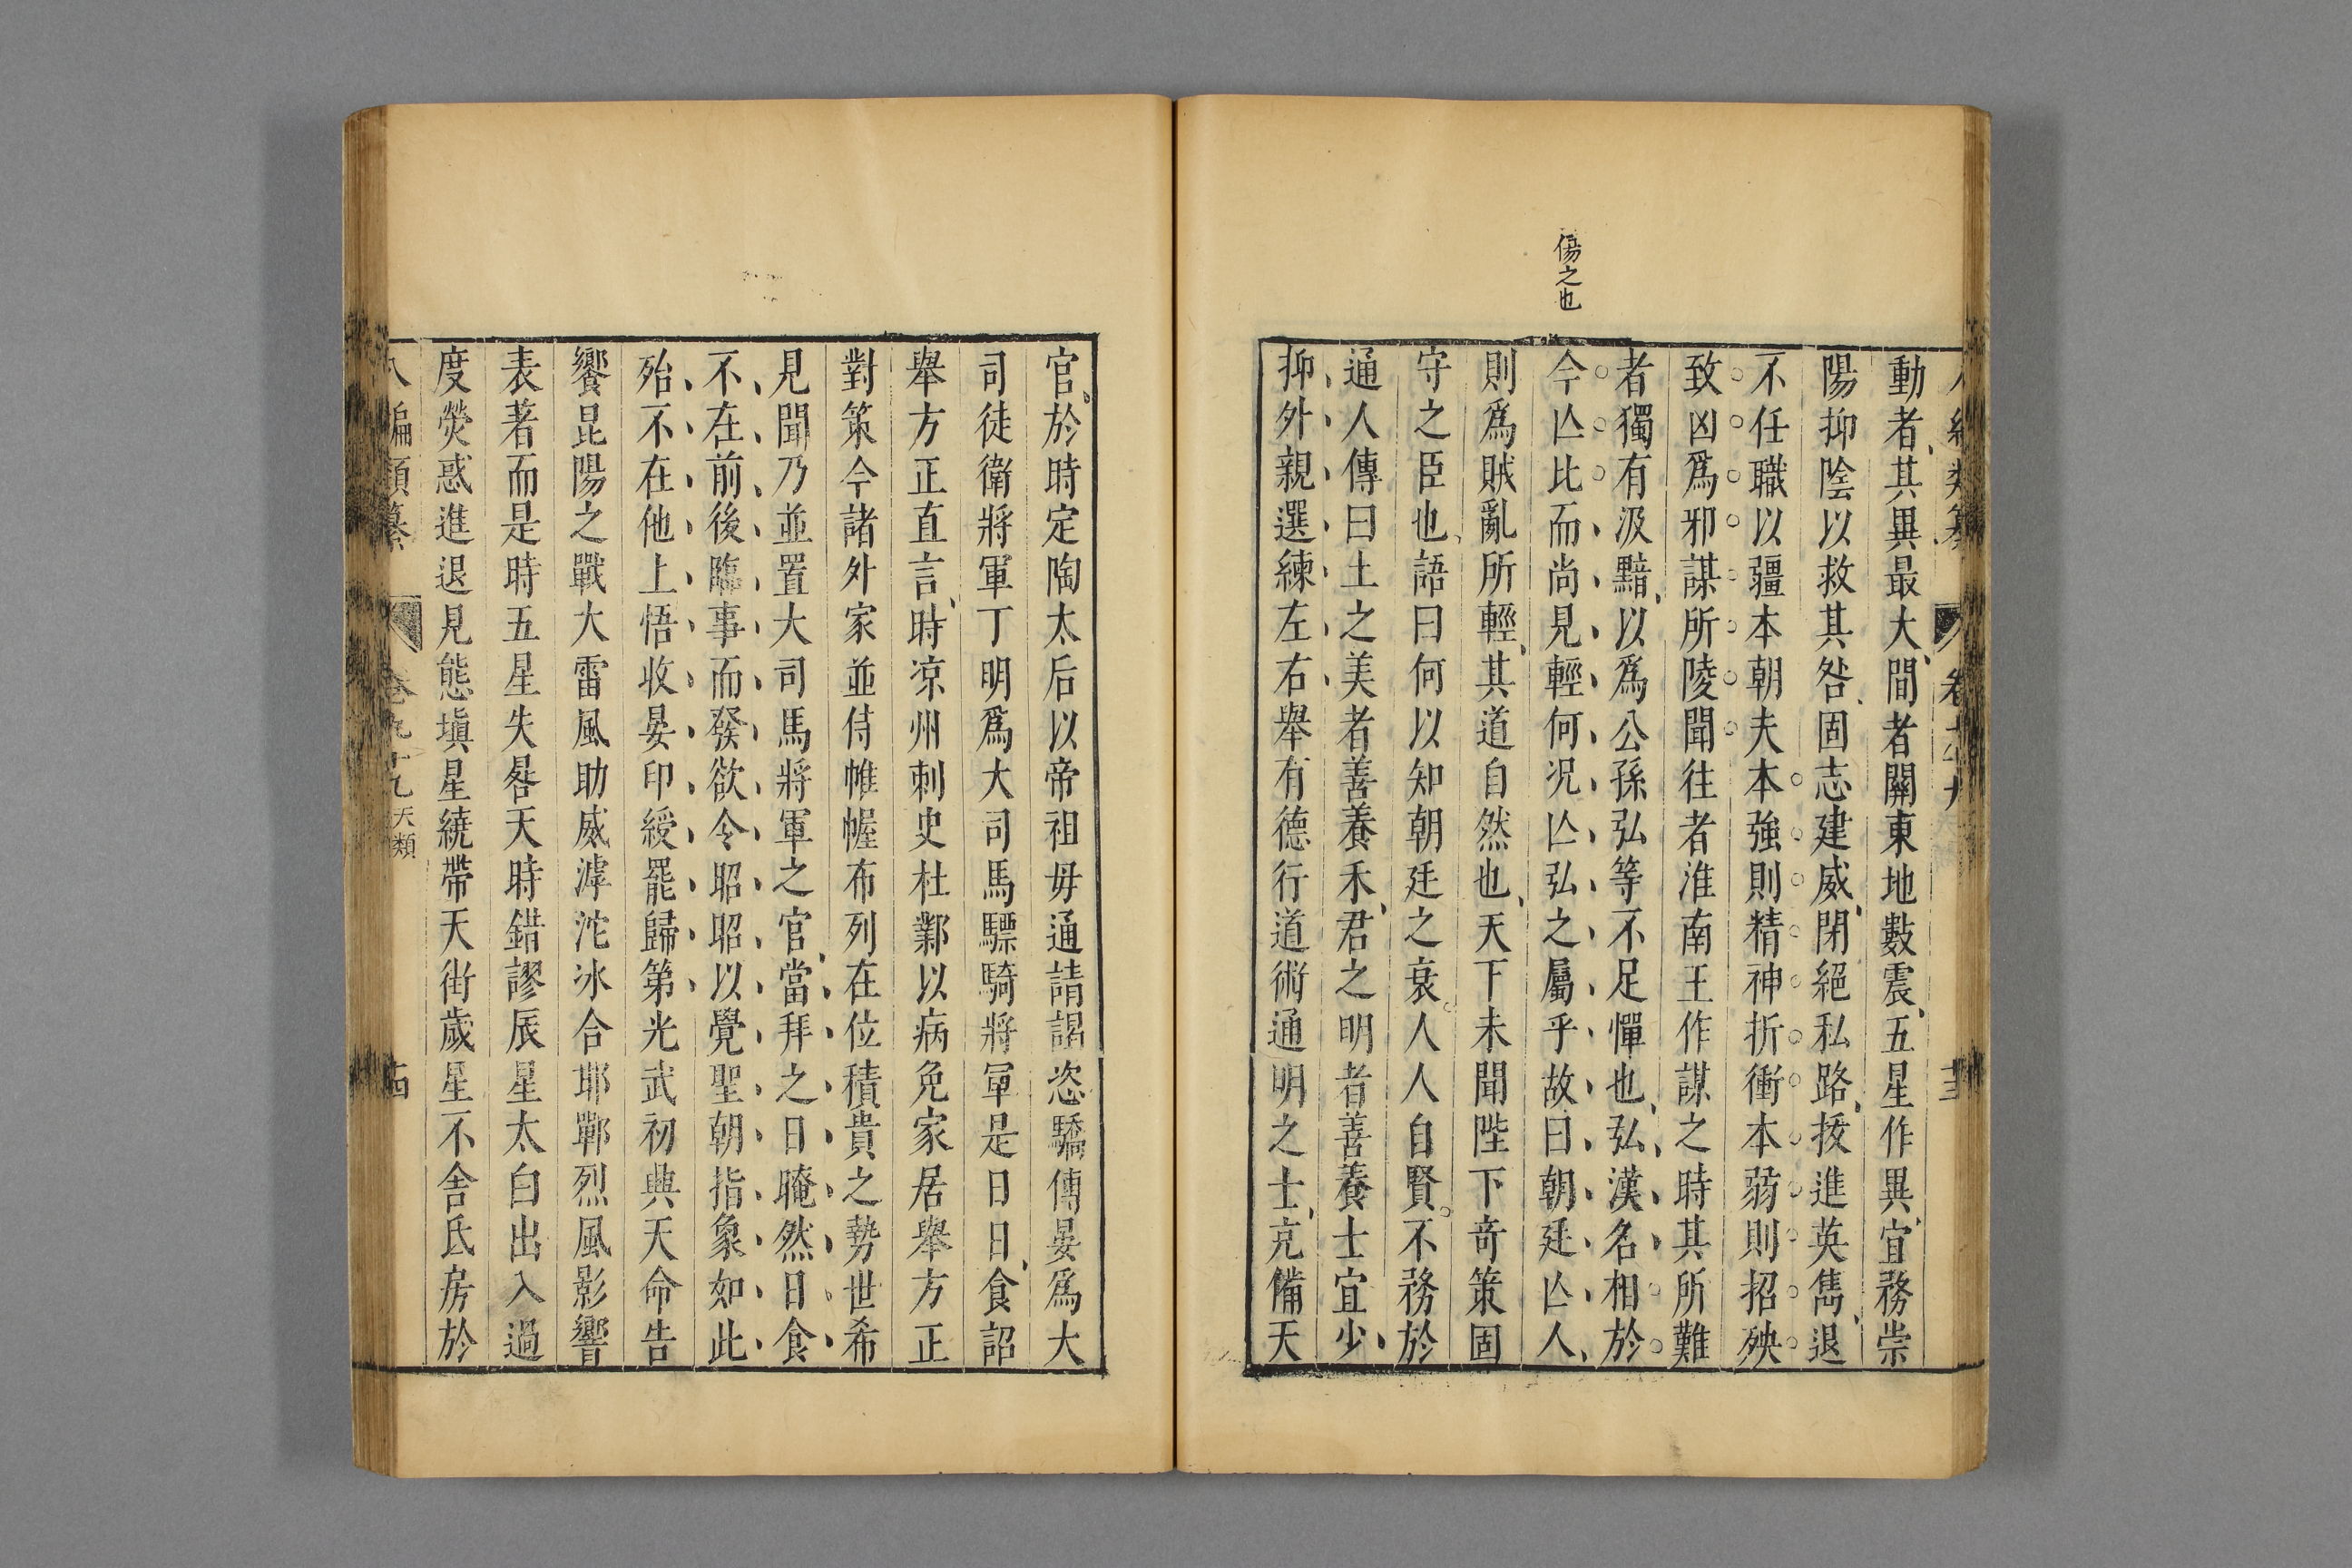 傷之也
動者其異最大間者關東地數震五星作異宜務崇
陽抑陰以救其咎固志建威閉絕私路拔進英雋退
不任職以疆本朝夫本強則精神折衝本弱則招殃
致凶爲邪謀所陵聞往者淮南王作謀之時其所難
者獨有汲黯以爲公孫弘等不足憚也弘漢名相於
今亾比而尚見輕何況亾弘之屬乎故曰朝廷亾人
則爲賊亂所輕其道自然也天下未聞陛下奇策固
守之臣也語曰何以知朝廷之衰人人自賢不務於
通人傳曰土之美者善養禾君之明者善養士宜少
抑外親選練左右舉有德行道術通明之士充備天
官於時定陶太后以帝祖母通請謁恣驕傳晏爲大
司徒衛將軍丁明爲大司馬驃騎將軍是日日食詔
舉方正直言時涼州刺史杜鄴以病免家居舉方正
對策今諸外家並侍帷幄布列在位積貴之勢世希
見聞乃並置大司馬將軍之官當拜之日晻然日食
不在前後臨事而發欲令昭昭以覺聖朝指象如此
殆不在他上悟收晏印綬罷歸第光武初典天命告
饗昆陽之戰大雷風助威滹沱冰合邯鄲烈風影響
表著而是時五星失晷天時錯謬辰星太白出入過
度熒惑進退見態塡星繞帶天街歲星不舍氐房於
八編類纂 卷九十九 天類 十四